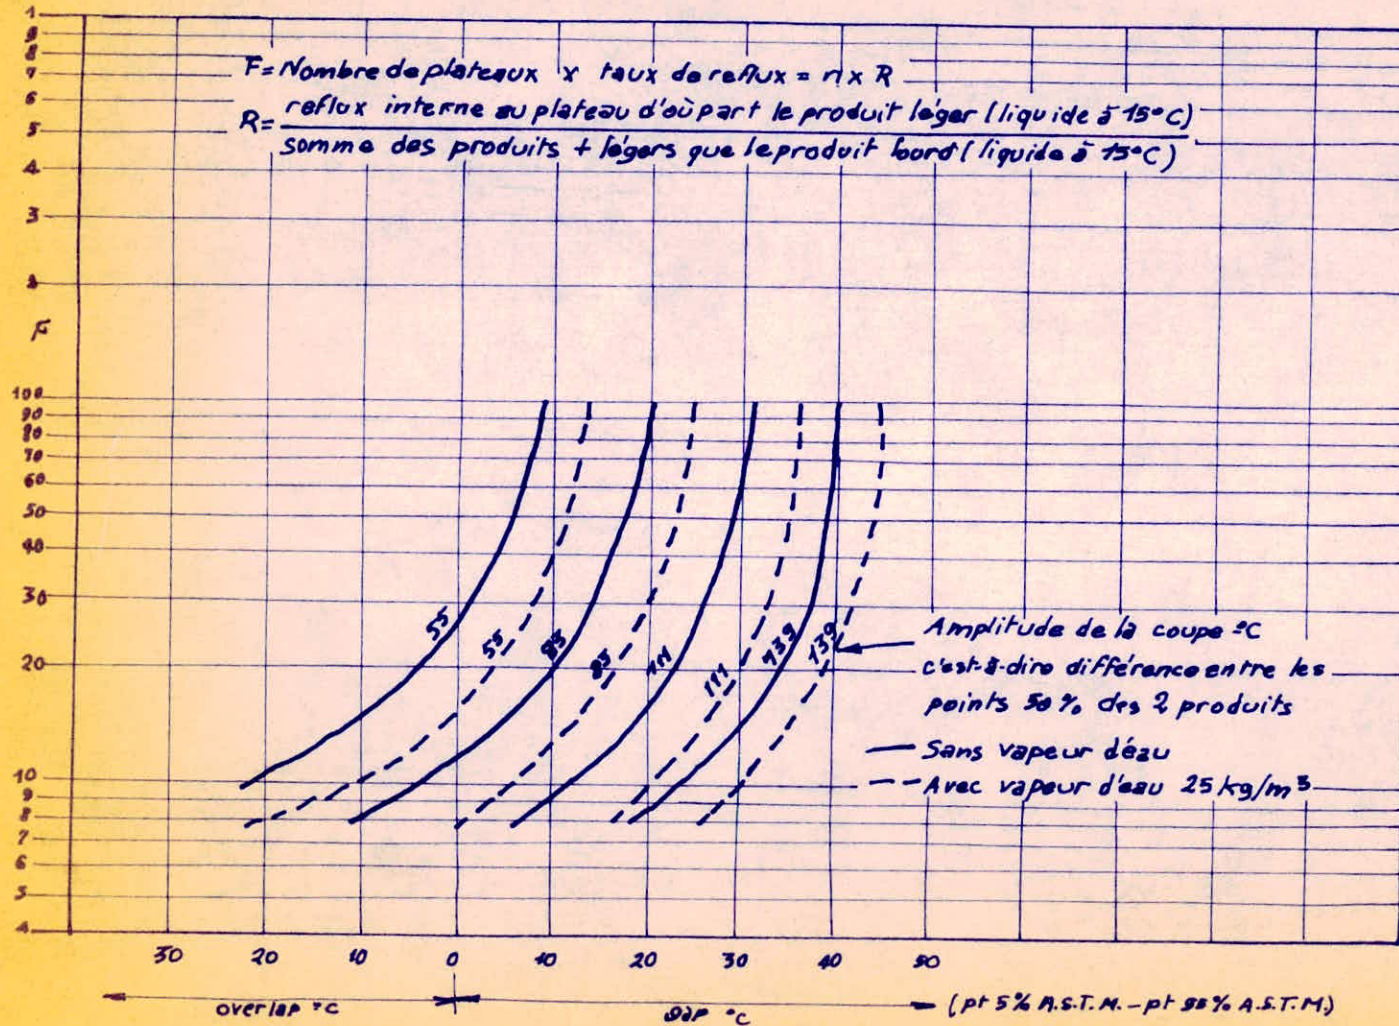 1
9
8
7
6
5
4
3
2
F
100
90
80
70
60
50
40
30
20
10
9
8
7
6
5
4
F = Nombre de plateaux x taux de reflux = n x R
R = reflux interne au plateau d'où part le produit léger (liquide à 15°C)
somme des produits + légers que le produit lourd (liquide à 15°C)
55
55
83
83
111
111
139
139
Amplitude de la coupe °C
c'est-à-dire différence entre les
points 50% des 2 produits
Sans vapeur d'éau
Avec vapeur d'eau 25 kg/m³
30 20 10 0 10 20 30 40 50
overlap °C
gap °C
(pt 5% A.S.T.M. - pt 95% A.S.T.M.)